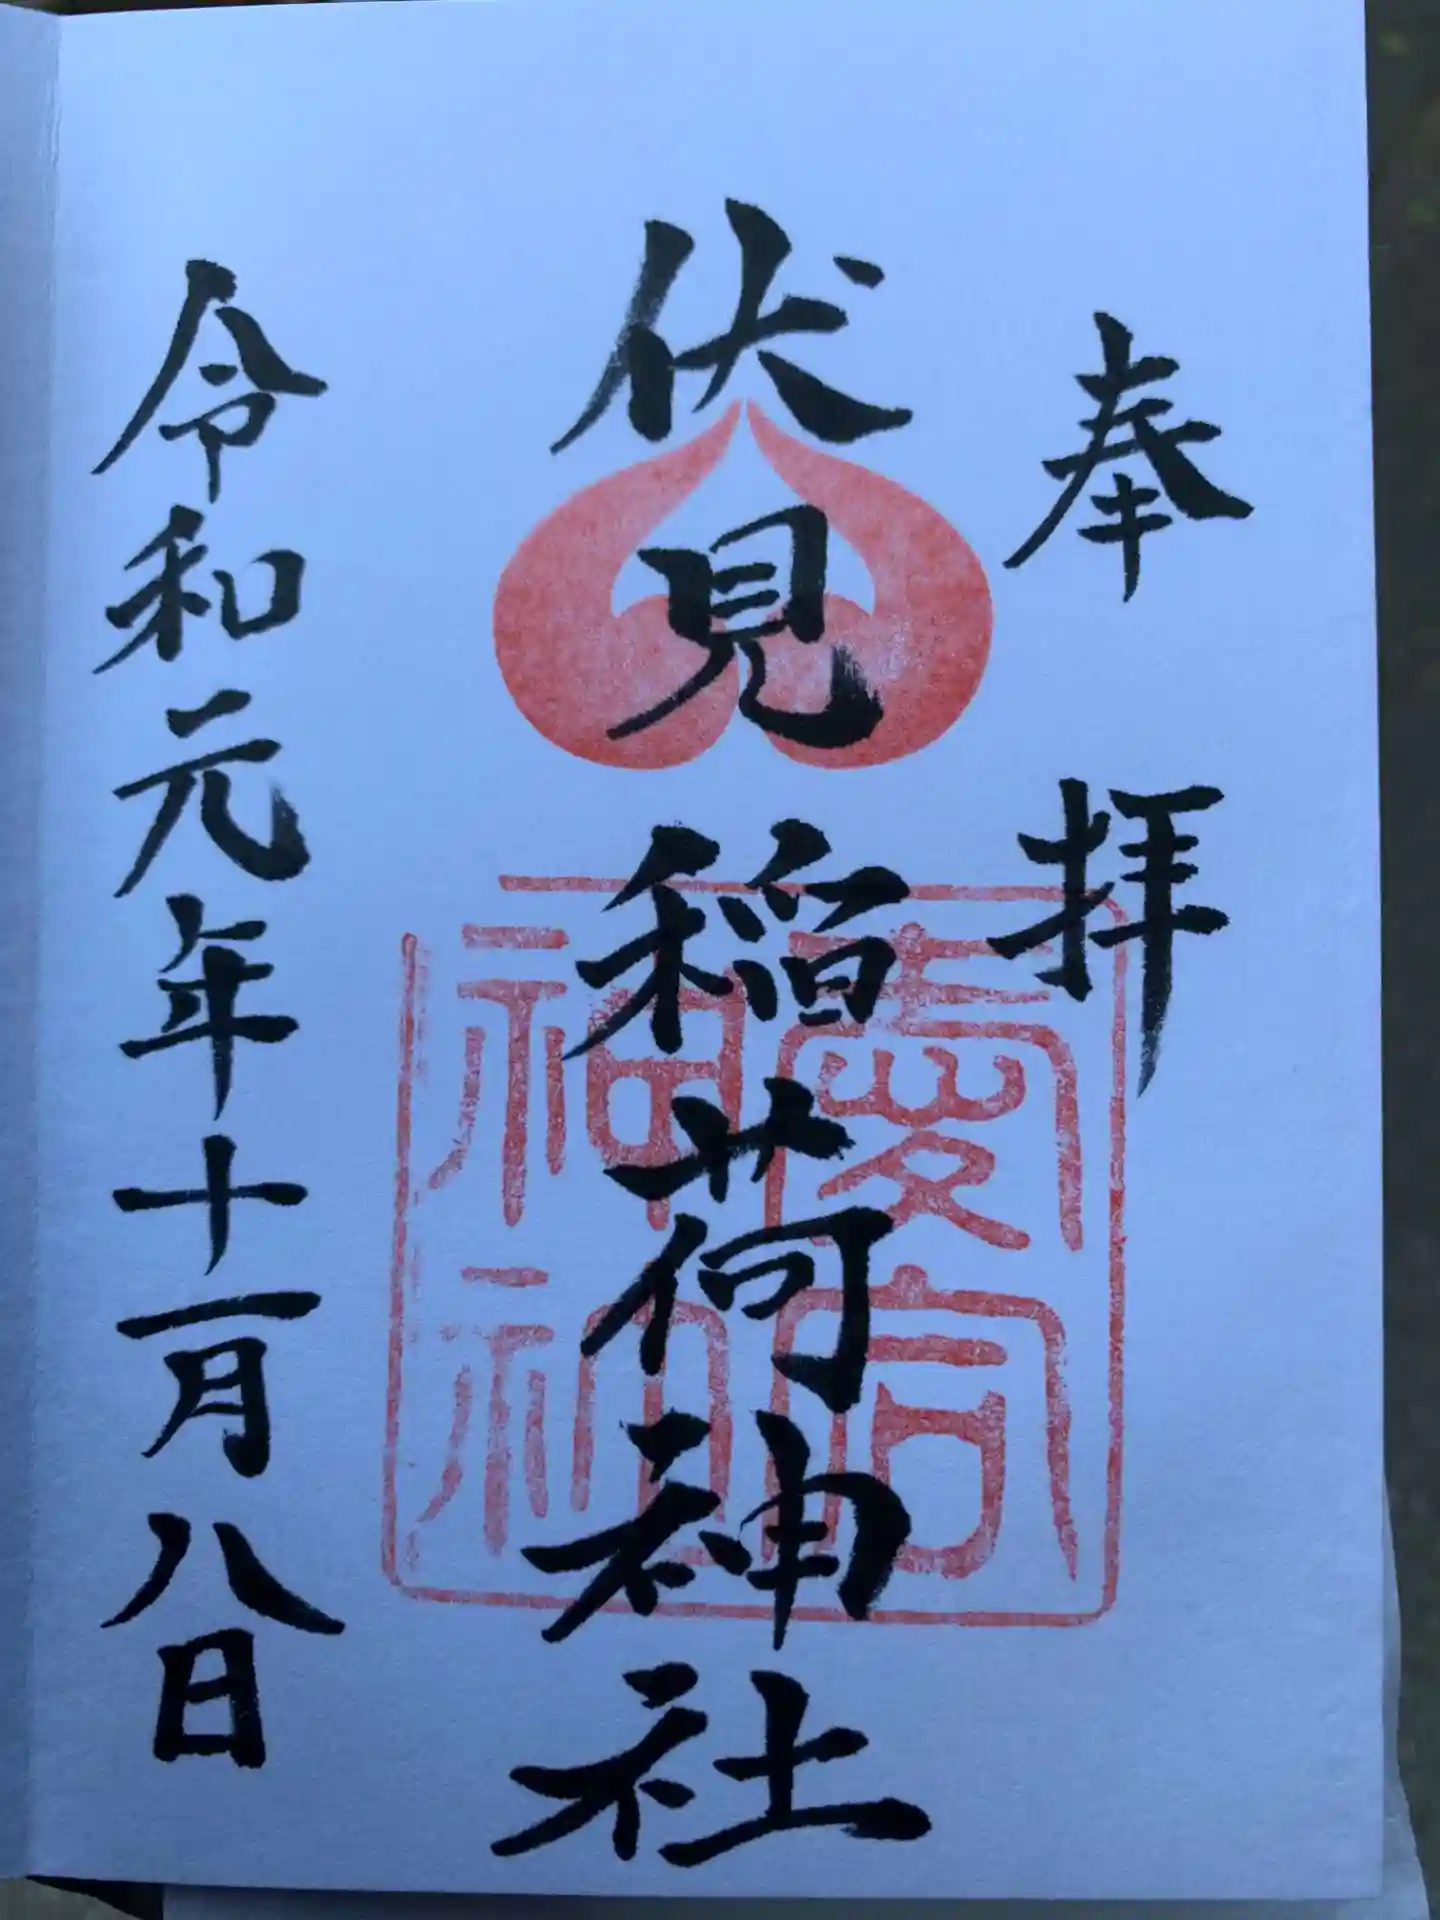 奉拝
伏見稲荷神社
令和元年十一月八日